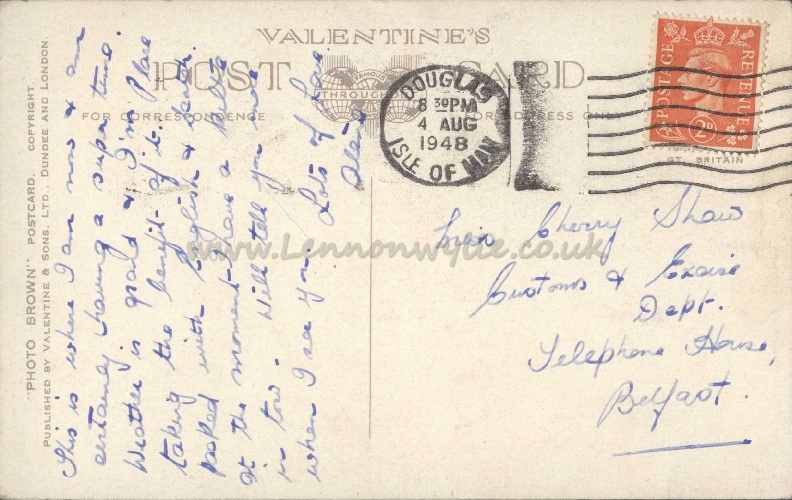 VALENTINE'S
POST CARD
FAMOUS
THROUGHOUT
FOR CORRESPONDENCE
FOR ADDRESS ONLY
"PHOTO BROWN" POSTCARD. COPYRIGHT.
PUBLISHED BY VALENTINE & SONS. LTD., DUNDEE AND LONDON.
GT. BRITAIN
POSTAGE REVENUE
2D
DOUGLAS
8 30PM
4 AUG
1948
ISLE OF MAN
This is where I am now & am
certainly having a super time.
Weather is grand & I'm
taking the benefit of it. Place
packed with English & Scotch.
At the moment I have a
in tow. Will tell you more
when I see you. Lots of Love.
Cherry Shaw
Customs & Excise
Dept.
Telephone House,
Belfast.
www.Lennonwylie.co.uk